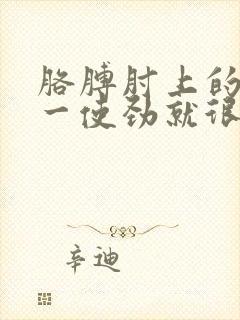 胳膊肘上的
一使劲就很
辛迪